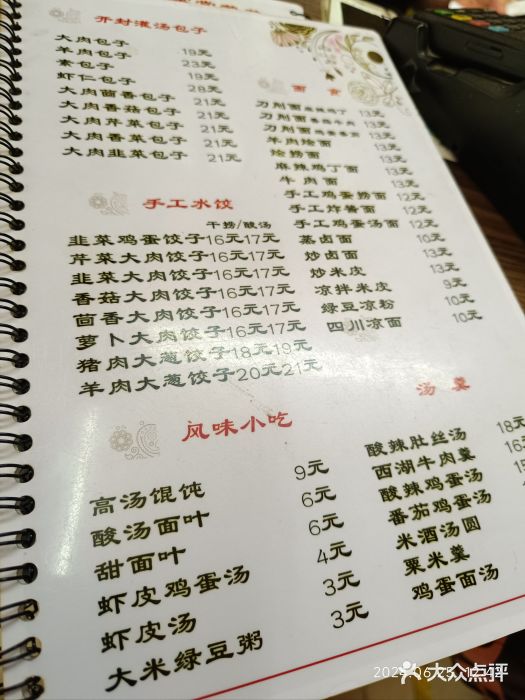 开封灌汤包子
大肉包子 19元
羊肉包子 23元
素包子 19元
虾仁包子 28元
大肉茴香包子 21元
大肉香菇包子 21元
大肉芹菜包子 21元
大肉香菜包子 21元
大肉韭菜包子 21元
面食
刀削面 13元
刀削面 13元
刀削面 13元
羊肉烩面 13元
烩捞面 13元
麻辣鸡丁面 13元
牛肉面 13元
手工鸡蛋捞面 12元
手工炸酱面 12元
手工鸡蛋汤面 12元
蒸卤面 10元
炒卤面 13元
炒米皮 13元
凉拌米皮 9元
绿豆凉粉 10元
四川凉面 10元
手工水饺
干捞/酸汤
韭菜鸡蛋饺子16元17元
芹菜大肉饺子16元17元
韭菜大肉饺子16元17元
香菇大肉饺子16元17元
茴香大肉饺子16元17元
萝卜大肉饺子16元17元
猪肉大葱饺子18元19元
羊肉大葱饺子20元21元
风味小吃
高汤馄饨 9元
酸汤面叶 6元
甜面叶 6元
虾皮鸡蛋汤 4元
虾皮汤 3元
大米绿豆粥 3元
汤羹
酸辣肚丝汤 18元
西湖牛肉羹 16
酸辣鸡蛋汤
番茄鸡蛋汤
米酒汤圆
粟米羹
鸡蛋面汤
大众点评